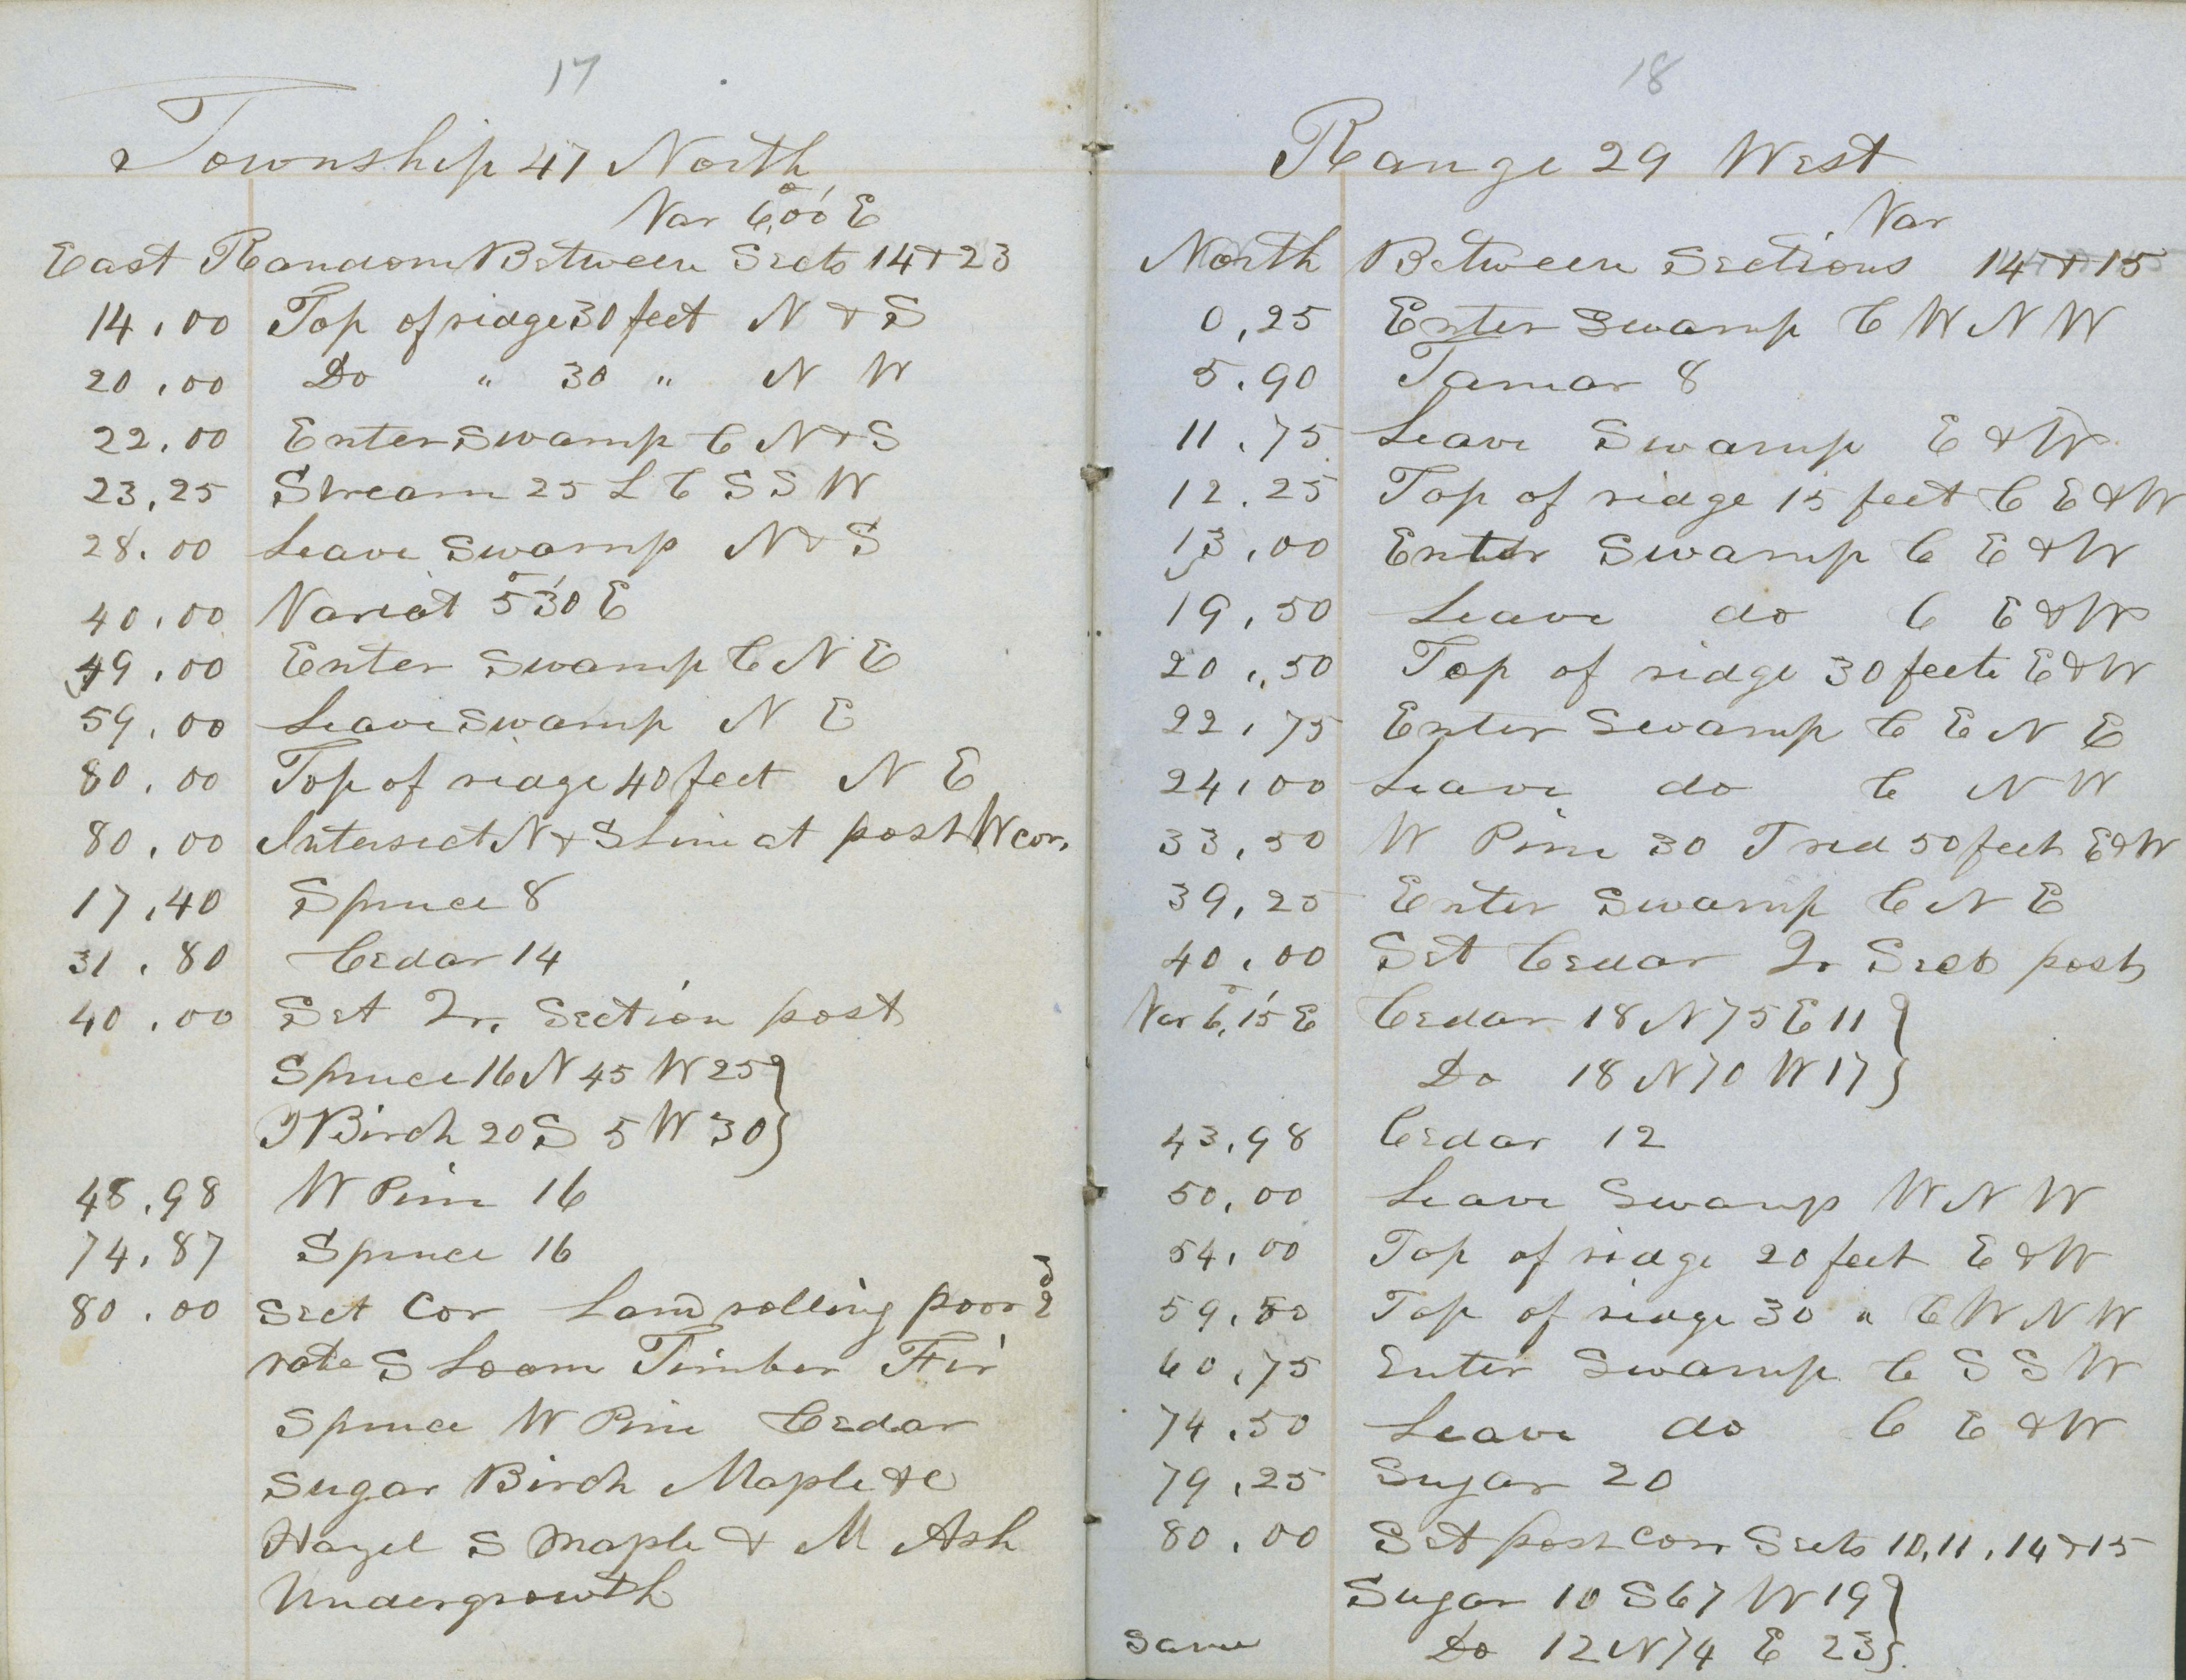 17
Township 47 North
Var 6,°00' E
East Random Between Sects 14 & 23
14.00 Top of ridge 30 feet N & S
20.00 Do " 30 " N W
22.00 Enter Swamp C N & S
23.25 Stream 25 L C S S W
28.00 Leave Swamp N & S
40.00 Variat 5°30' E
49.00 Enter Swamp C N E
59.00 Leave Swamp N E
80.00 Top of ridge 40 feet N E
80.00 Intersect N & S Line at post W cor.
17.40 Spruce 8
31.80 Cedar 14
40.00 Set Qr. Section post
Spruce 16 N 45 W 25 }
Y Birch 20 S 5 W 30 }
48.98 W Pine 16
74.87 Spruce 16
80.00 Sect Cor Land rolling poor 2d
rate S Loam Timber Fir
Spruce W Pine Cedar
Sugar Birch Maple &c
Hazel S Maple & M Ash
Undergrowth
18
Range 29 West
Var
North Between Sections 14 & 15
0,25 Enter Swamp C W N W
5.90 Tamar 8
11.75 Leave Swamp E & W
12.25 Top of ridge 15 feet C E & W
13.00 Enter Swamp C E & W
19.50 Leave do C E & W
20.50 Top of ridge 30 feet E & W
22.75 Enter Swamp C E N E
24.00 Leave do C N W
33.50 W Pine 30 T red 50 feet E & W
39.25 Enter Swamp C N E
40.00 Set Cedar Qr Sect post
Var 6,°15' E Cedar 18 N 75 E 11 }
Do 18 N 70 W 17 }
43.98 Cedar 12
50.00 Leave Swamp W N W
54.00 Top of ridge 20 feet E & W
59.50 Top of ridge 30 " C W N W
60.75 Enter Swamp C S S W
74.50 Leave do C E & W
79.25 Sugar 20
80.00 Set post Cor Sects 10, 11, 14 & 15
Sugar 10 S 67 W 19 }
Same Do 12 N 74 E 23 }